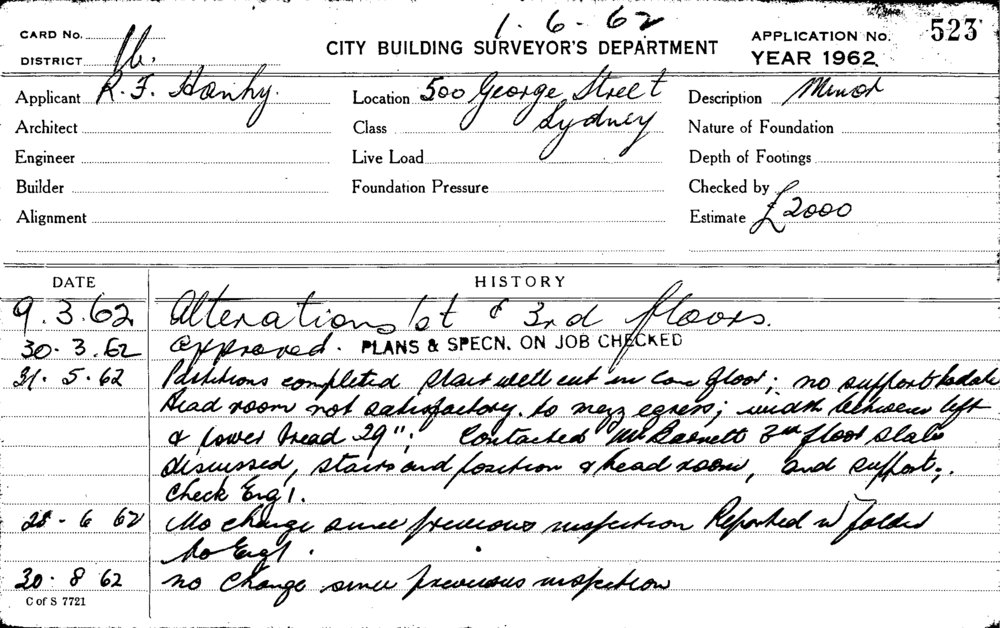 1. 6. 62
CARD No.
CITY BUILDING SURVEYOR'S DEPARTMENT
APPLICATION No. 523
DISTRICT
YEAR 1962.
Applicant R. F. Hanhy.
Location 500 George Street
Description Minor
Architect
Class Sydney
Nature of Foundation
Engineer
Live Load
Depth of Footings
Builder
Foundation Pressure
Checked by
Alignment
Estimate £2000
DATE
HISTORY
9.3.62 Alterations 1st & 3rd floors.
30.3.62 approved. PLANS & SPECN. ON JOB CHECKED
31.5.62 Partitions completed stair well cut in conc floor; no support to date
Head room not satisfactory to mezz egress; width between left
& lower tread 29"; Contacted Mr Barnett 3rd floor slab
discussed, stairs and position & head room, and support;
Check Eng'.
28-6 62 No change since previous inspection Reported in folder
No Eng'.
30.8 62 no change since previous inspection
C of S 7721